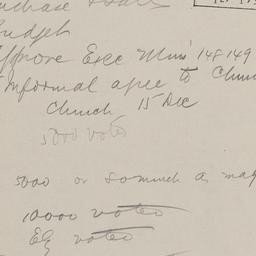 Budget
Approve Exec Mins 148 149
Informal agee to Church
Church 15 Dec
5000 voted
5000 or so much as may
10000 voted
voted